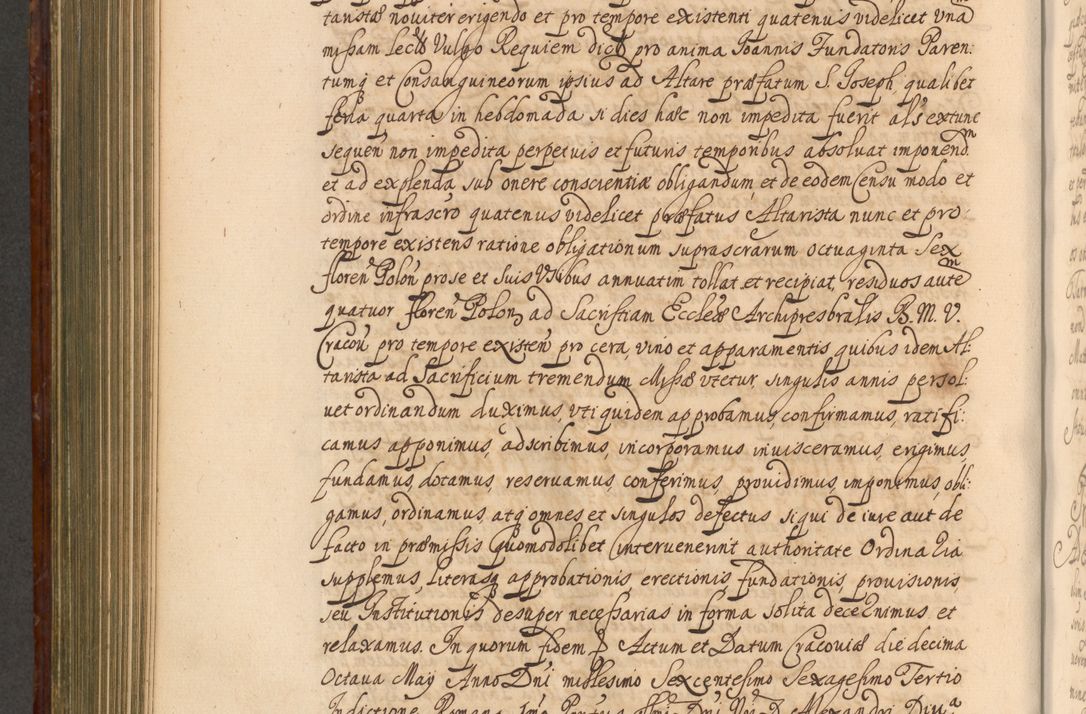 taristæ noviter erigendo et pro tempore existenti quatenus videlicet Una
missam lectã Vulgo Requiem dictã pro anima Joannis Fundatoris Paren:
tumq et Consanguineorum ipsius ad Altare præfatum S. Joseph qualibet
feria quarta in hebdomada si dies hæc non impedita fuerit als extunc
sequen non impedita perpetuis et futuris temporibus absoluat imponend
et ad explenda sub onere conscientiæ obligandum et de eodem Censu modo et
ordine infrascro quatenus videlicet præfatus Altarista nunc et pro
tempore existens ratione obligationum suprascrarum octuaginta Sex
floren Polon pro se et suis Usibus annuatim tollat et recipiat, residuos aute
quatuor floren Polon ad Sacristiam Eccleæ Archipresbralis B. M. V.
Cracou pro tempore existen pro cera, vino et apparamentis quibus idem Al:
tarista ad Sacrificium tremendum Missæ utetur, singulis annis persol:
uet ordinandum duximus, uti quidem approbamus, confirmamus, ratifi:
camus apponimus, adscribimus, incorporamus inuisceramus, erigimus
fundamus, dotamus, reseruamus, conferimus, prouidimus, imponimus, obli:
gamus, ordinamus, atq omnes et singulos defectus si qui de iure aut de
facto in præmissis quomodolibet interuenerint authoritate Ordinaria
supplemus, literasq approbationis erectionis fundationis prouisionis,
seu Institutionis desuper necessarias in forma solita decernimus et
relaxamus. In quorum fidem p Actum et Datum Cracouiæ die decima
Octava May Anno Dni millesimo Sexcentesimo Sexagesimo Tertio